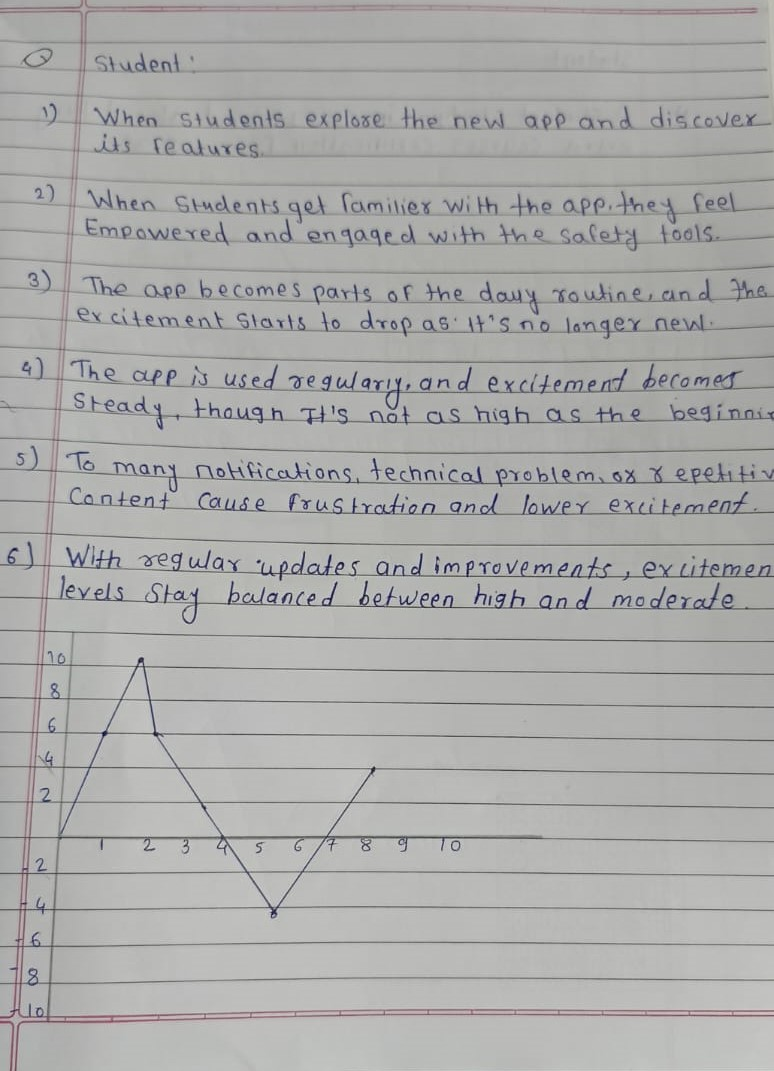 Q Student:
1) When students explore the new app and discover
its features.
2) When students get familier with the app, they feel
Empowered and engaged with the safety tools.
3) The app becomes parts of the dauy routine, and the
excitement starts to drop as it's no longer new.
4) The app is used regulariy, and excitement becomes
Steady, though It's not as high as the beginnin
5) To many notifications, technical problem, or repetitiv
Content cause frustration and lower excitement.
6) With regular updates and improvements, excitemen
levels stay balanced between high and moderate.
10
8
6
4
2
1 2 3 4 5 6 7 8 9 10
-2
-4
-6
-8
-10